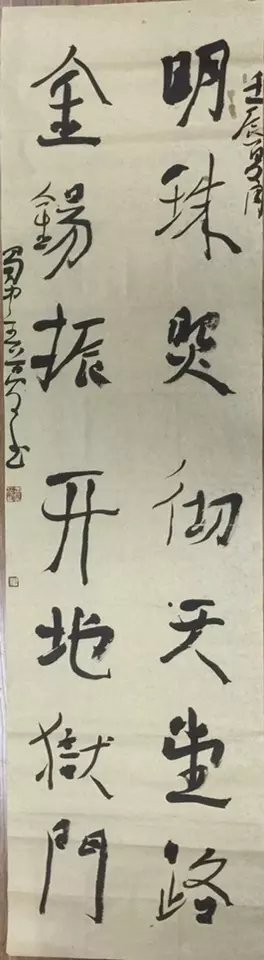 壬辰夏月
明珠照彻天堂路
金錫振开地獄門
蜀中